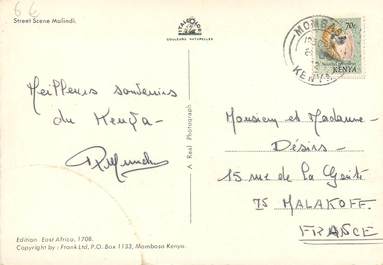 66
Street Scene Malindi.
ITALCOLOR
COULEURS NATURELLES
MOMBASA
KENYA
70c
KENYA
Meilleurs souvenirs
du Kenya-
A Real Photograph
Monsieur et Madame-
Désirs-
15 rue de la Gaité
75 MALAKOFF.
FRANCE
Edition: East Africa, 1708.
Copyright by: Frank Ltd, P.O Box 1133, Mombasa Kenya.